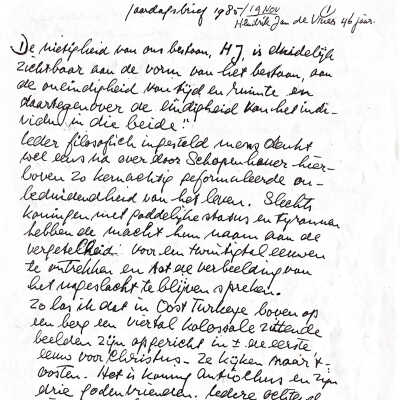 Jaardagsbrief 1985/19 NOV
Hendrik Jan de Vries 46 jaar.
"De nietigheid van ons bestaan, HJ, is duidelijk
zichtbaar aan de vorm van het bestaan, aan
de oneindigheid van tijd en ruimte en
daartegenover de eindigheid van het indi-
vidu in die beide."
Ieder filosofisch ingesteld mens denkt
wel eens na over door Schopenhauer hier-
boven zo kernachtig geformuleerde on-
beduidendheid van het leven. Slechts
koningen met goddelijke status en tyrannen
hebben de macht hun naam aan de
vergetelheid voor een twintigtal eeuwen
te onttrekken en tot de verbeelding van
het nageslacht te blijven spreken.
Zo las ik dat in Oost Turkeye boven op
een berg een viertal kolossale zittende
beelden zijn opgericht in ± de eerste
eeuw voor Christus. Ze kijken naar 't-
oosten. Het is koning Antiochus en zijn
drie godenvrienden. Iedere ochtend